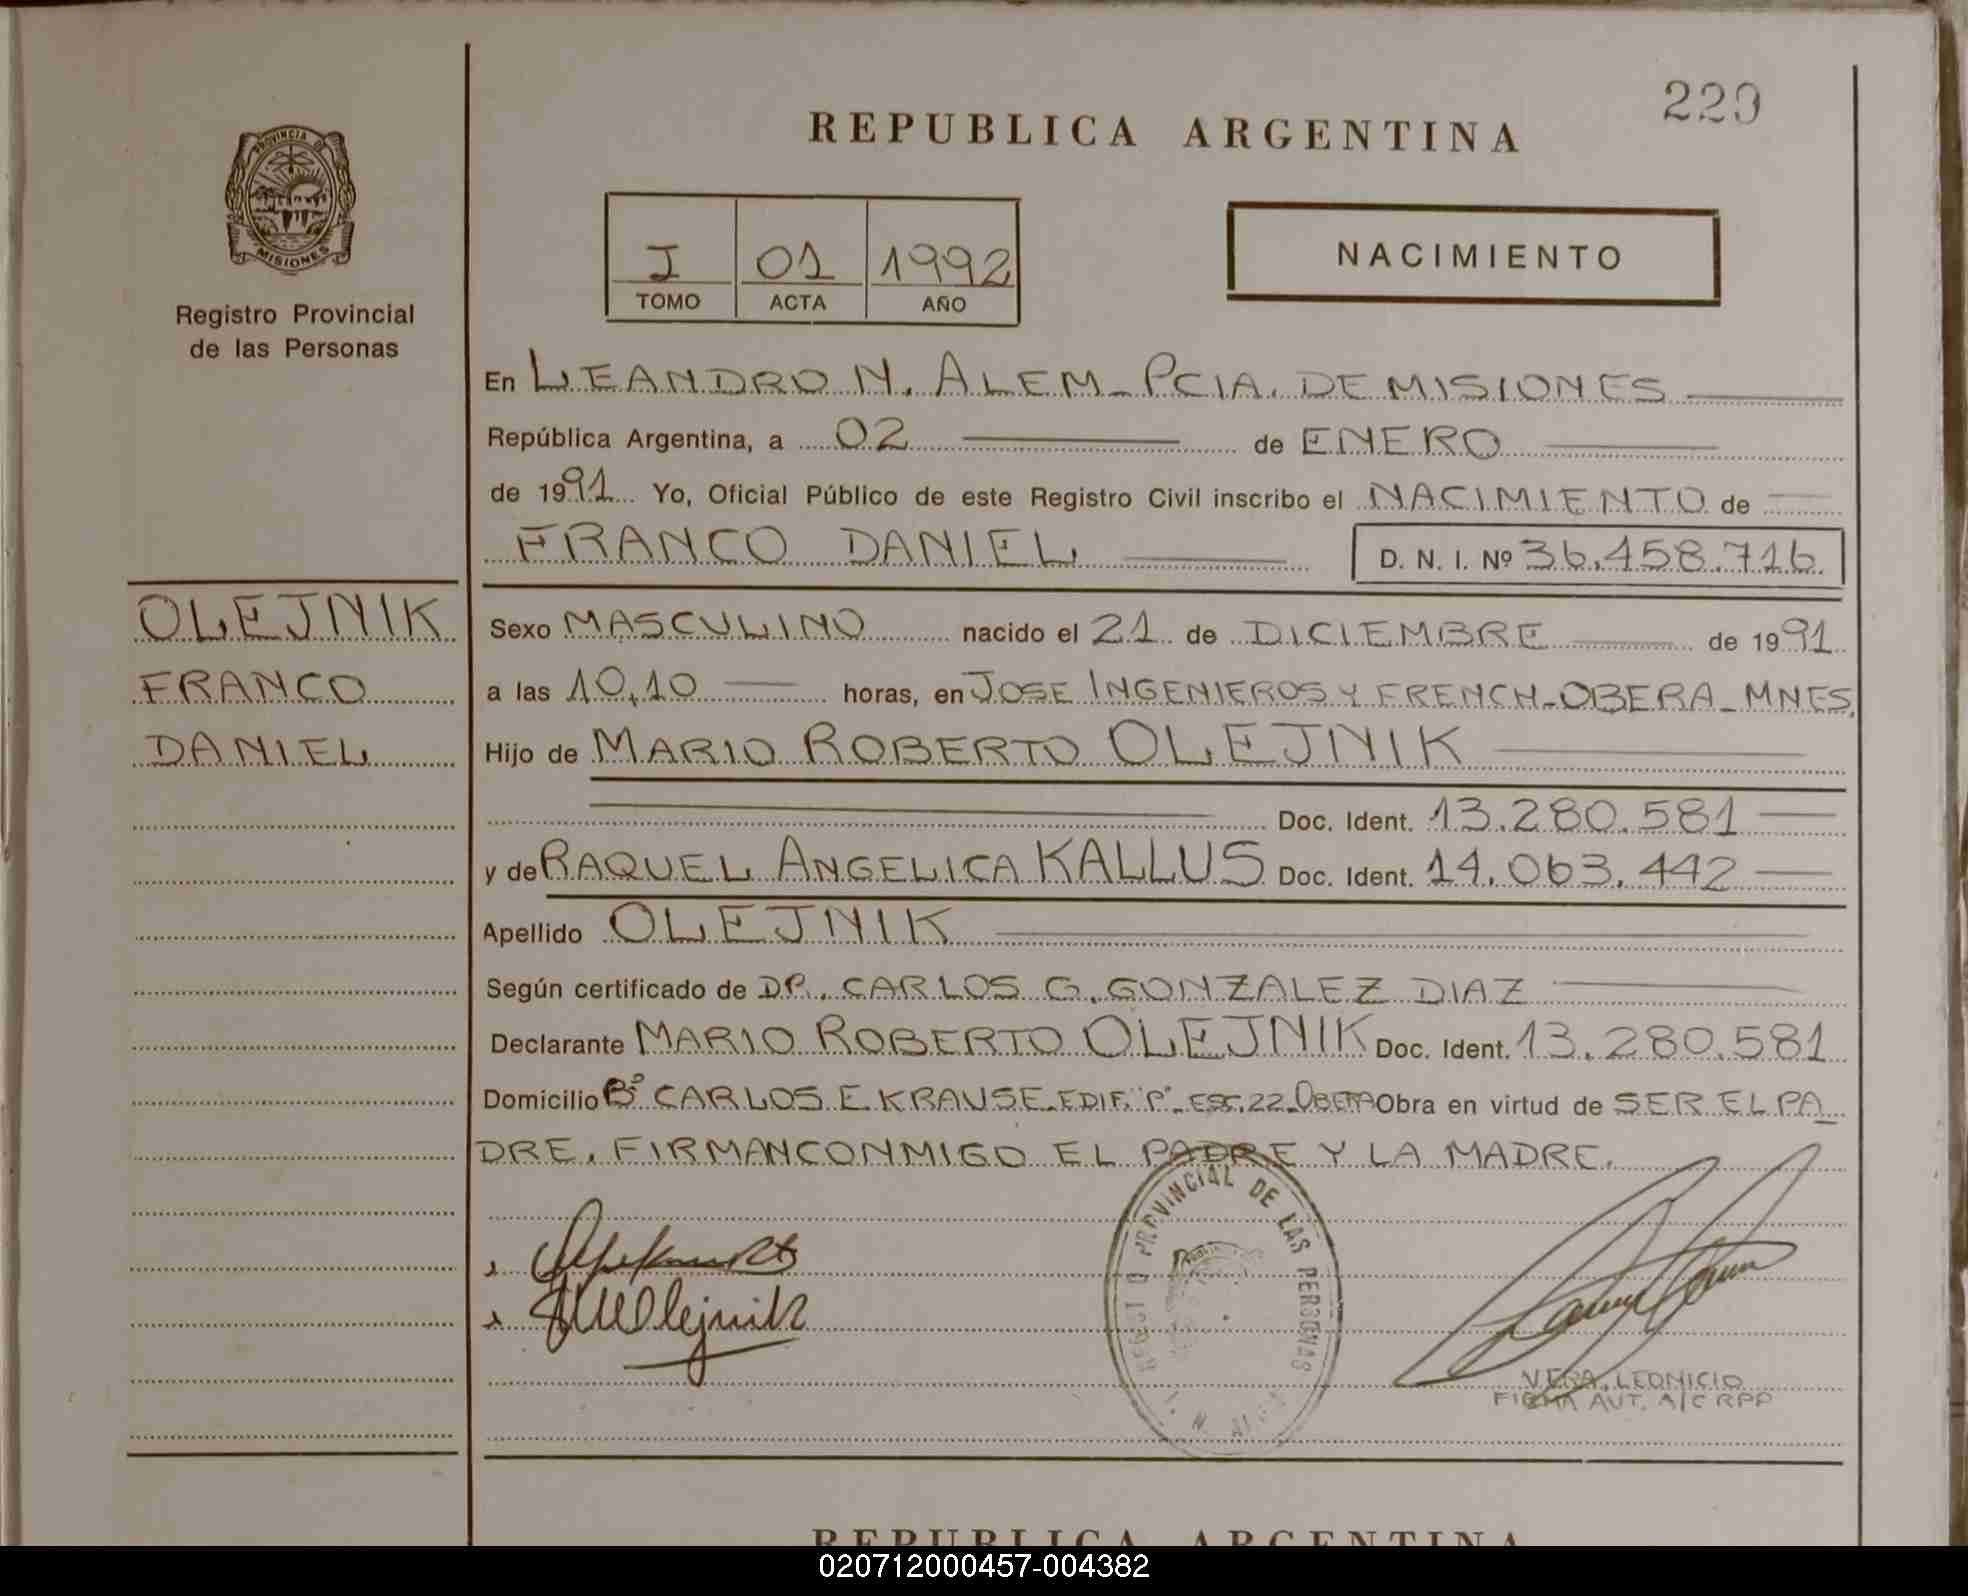 220
REPUBLICA ARGENTINA
PROVINCIA DE
MISIONES
Registro Provincial
de las Personas
I 01 1992
TOMO ACTA AÑO
NACIMIENTO
En LEANDRO N. ALEM - PCIA. DE MISIONES
República Argentina, a 02 de ENERO
de 1991 Yo, Oficial Público de este Registro Civil inscribo el NACIMIENTO de
FRANCO DANIEL D. N. I. Nº 36.458.716
OLEJNIK
FRANCO
DANIEL
Sexo MASCULINO nacido el 21 de DICIEMBRE de 1991
a las 10,10 horas, en JOSE INGENIEROS Y FRENCH - OBERA - MNES.
Hijo de MARIO ROBERTO OLEJNIK
Doc. Ident. 13.280.581
y de RAQUEL ANGELICA KALLUS Doc. Ident. 14.063.442
Apellido OLEJNIK
Según certificado de DR. CARLOS G. GONZALEZ DIAZ
Declarante MARIO ROBERTO OLEJNIK Doc. Ident. 13.280.581
Domicilio Bº CARLOS E KRAUSE - EDIF. "P" - ESC. 22 - OBERA Obra en virtud de SER EL PA
DRE. FIRMAN CONMIGO EL PADRE Y LA MADRE.
PROVINCIAL DE LAS PERSONAS
Olejnik
VERA, LEONICIO
FIRMA AUT. A/C RPP
REPUBLICA ARGENTINA
020712000457-004382